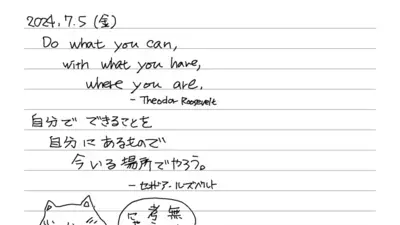 2024.7.5 (金)
Do what you can,
with what you have,
where you are.
- Theodor Roosevelt
自分で できることを
自分に あるもので
今いる場所でやろう。
- セオドア・ルーズベルト
無
考